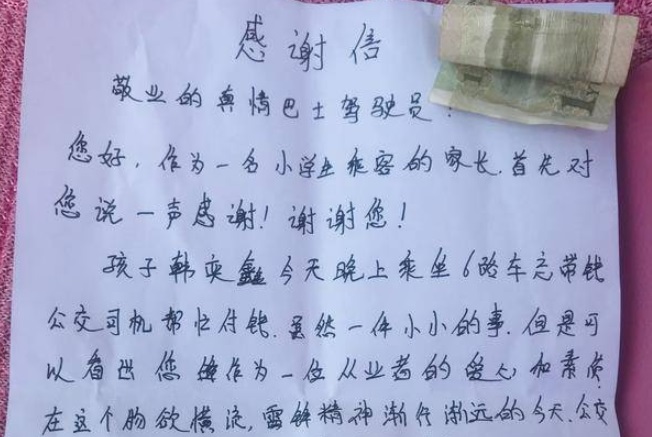 感谢信
敬业的真情巴士驾驶员:
您好,作为一名小学生乘客的家长,首先对
您说一声感谢!谢谢您!
孩子韩奕鑫今天晚上乘坐6路车忘带钱
公交司机帮忙付钱.虽然一件小小的事.但是可
以看出您 作为一位从业者的爱心和素质
在这个物欲横流,雷锋精神渐行渐远的今天.公交